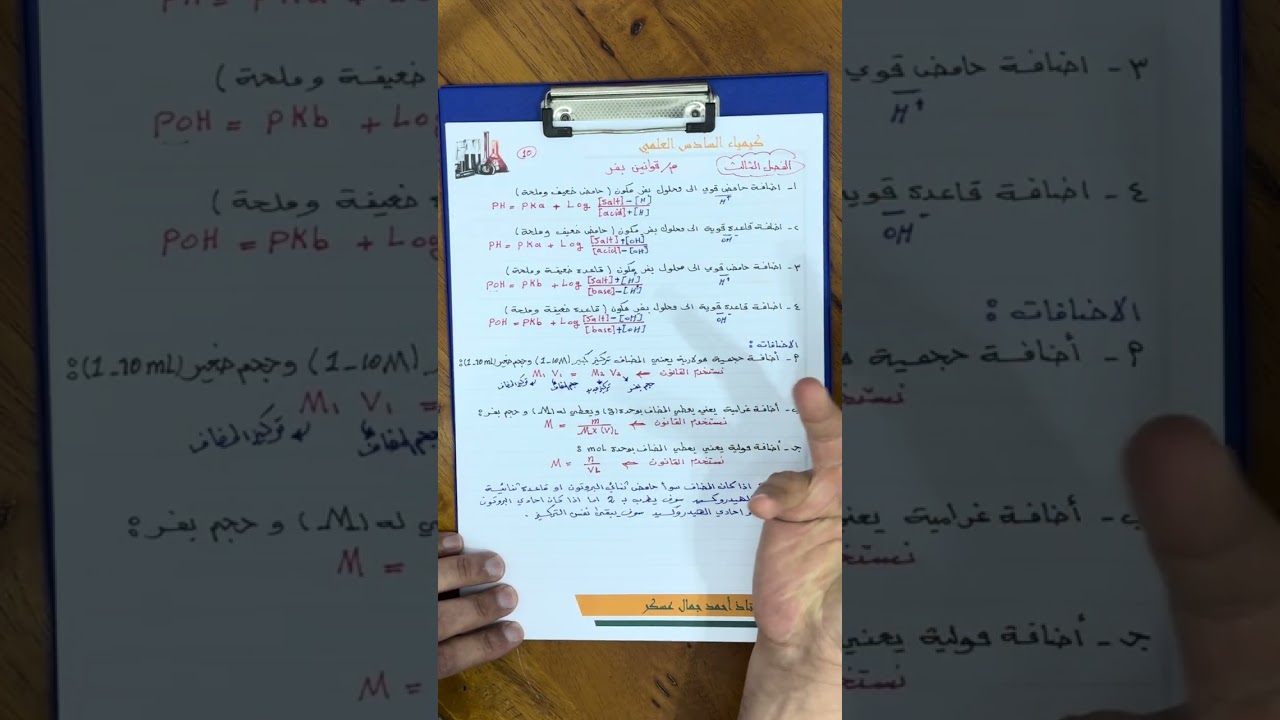 كيمياء السادس العلمي
10
الفصل الثالث
م/ قوانين بفر
١- اضافة حامض قوي الى محلول بفر مكون (حامض ضعيف وملحة)
H⁺
PH = PKa + Log [salt]-[H] / [acid]+[H]
٢- اضافة قاعدة قوية الى محلول بفر مكون (حامض ضعيف وملحة)
OH
PH = PKa + Log [salt]+[OH] / [acid]-[OH]
٣- اضافة حامض قوي الى محلول بفر مكون (قاعدة ضعيفة وملحة)
H⁺
POH = PKb + Log [salt]+[H] / [base]-[H⁺]
٤- اضافة قاعدة قوية الى محلول بفر مكون (قاعدة ضعيفة وملحة)
OH
POH = PKb + Log [salt]-[OH] / [base]+[OH]
الاضافات :
أضافة حجمية مولارية يعني المضاف تركيز كبير (1-10M) وحجم صغير (1-10mL) :
نستخدم القانون ← M₁ V₁ = M₂ V₂
تركيز المضاف حجم المضاف حجم بفر
ب- أضافة غرامية يعني يعطي المضاف بوحدة (g) ويعطي له (M) و حجم بفر :
نستخدم القانون ← M = m / M×(V)L
ج- أضافة مولية يعني يعطي المضاف بوحدة mol :
نستخدم القانون ← M = n / VL
اذا كان المضاف سوأ حامض ثنائي البروتون او قاعدة ثنائية
الهيدروكسيد سوف يضرب بـ 2 اما اذا كان احادي البروتون
او احادي الهيدروكسيد سوف يبقى نفس التركيز .
أحمد جمال عسكر